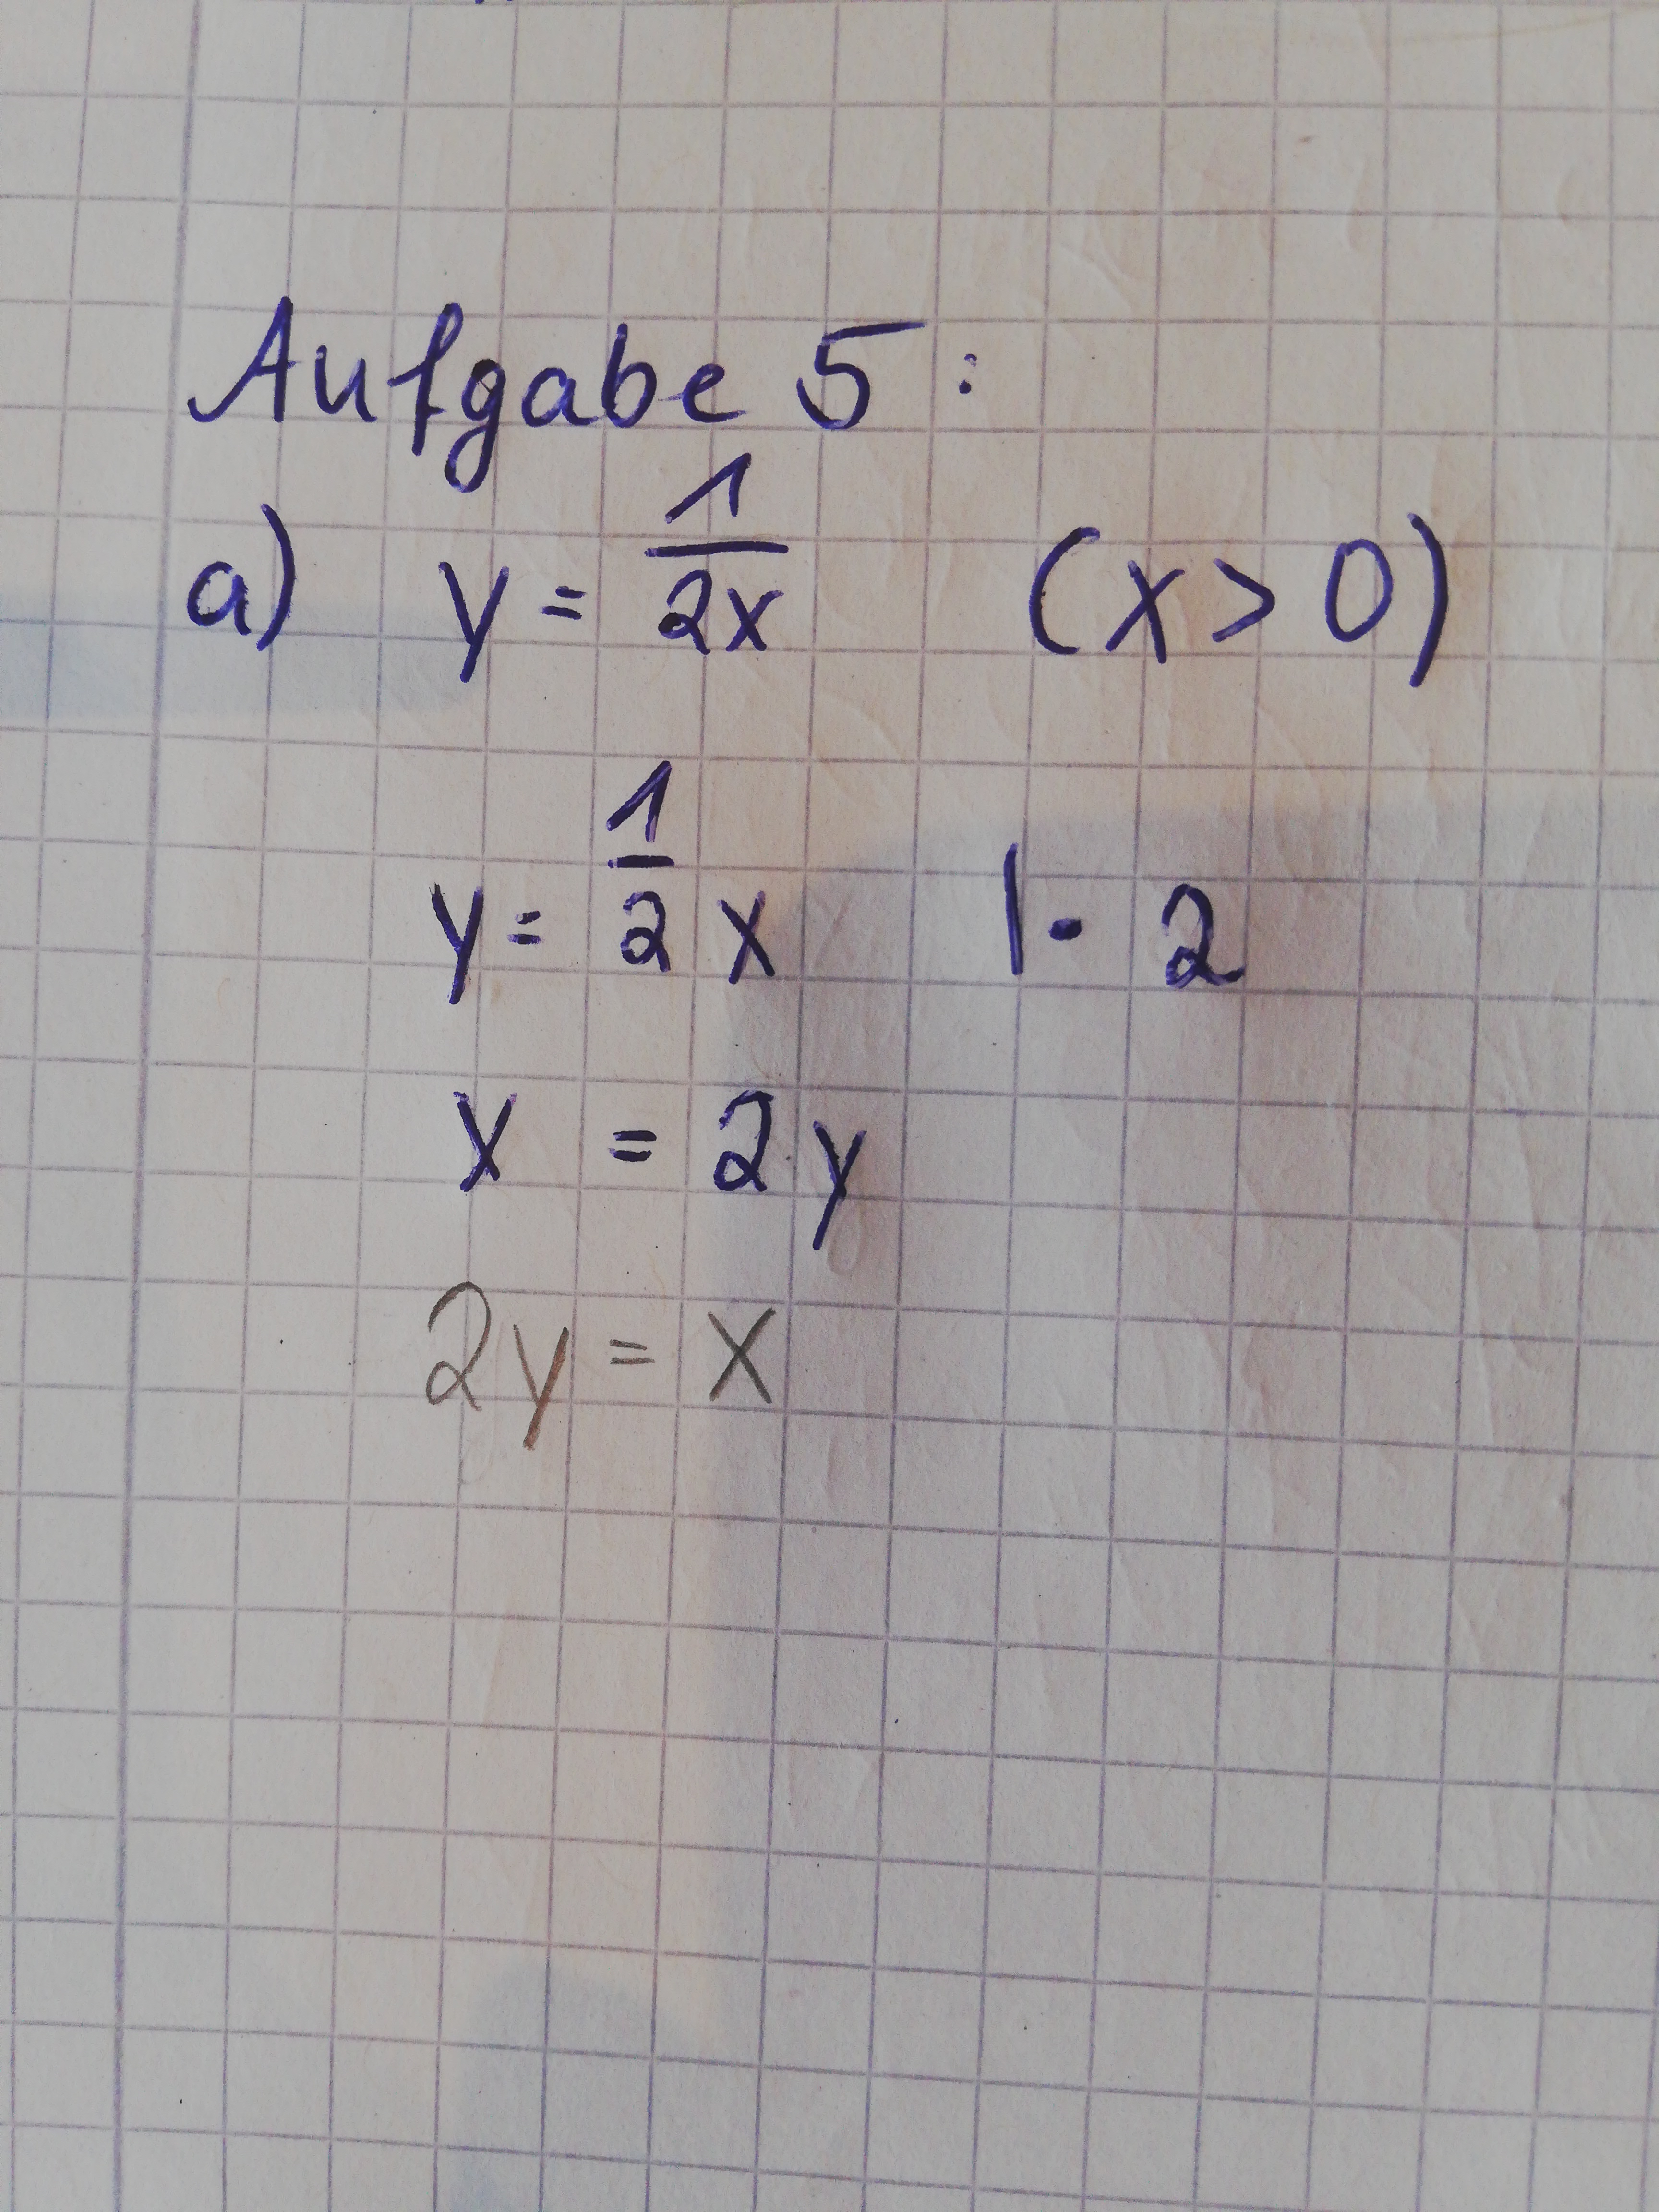 Aufgabe 5:
a) y = 1/2x (x > 0)
y = 1/2 x |· 2
x = 2y
2y = x